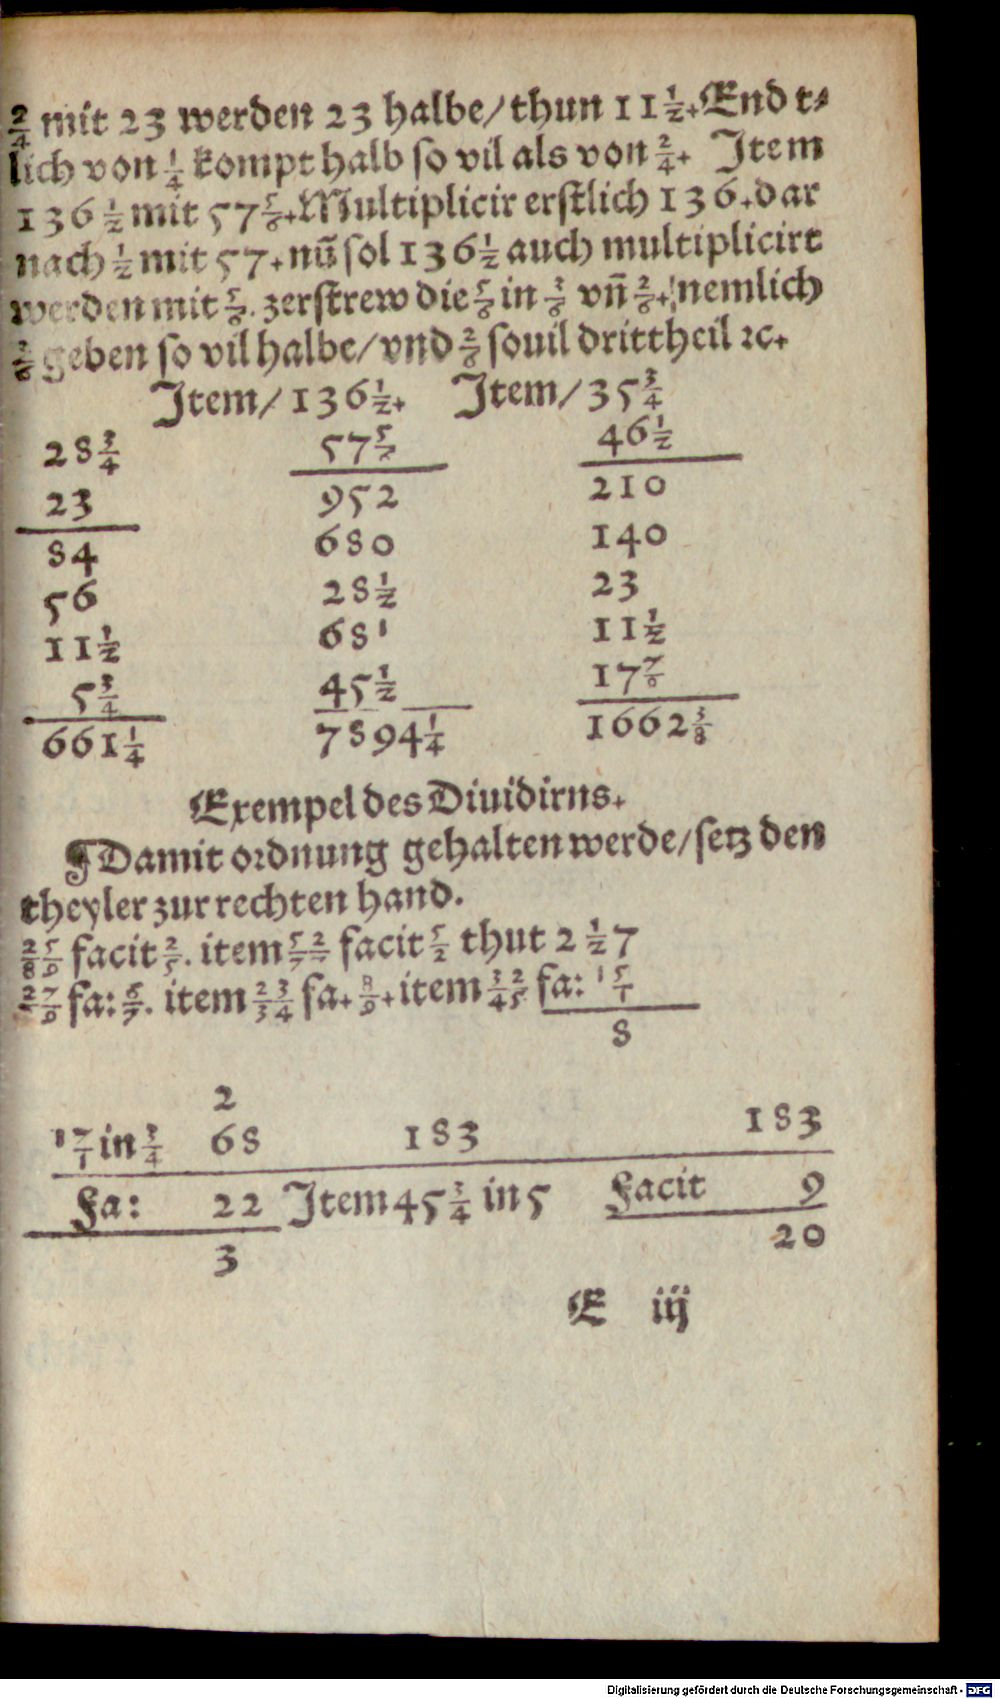 2/4 mit 23 werden 23 halbe/ thun 11 1/2. Endt⸗
lich von 1/4 kompt halb so vil als von 2/4. Item
136 1/2 mit 57 5/6. Multiplicir erstlich 136. dar
nach 1/2 mit 57. nũ sol 136 1/2 auch multiplicirt
werden mit 5/6. zerstrew die 5/6 in 3/6 vñ 2/6. nemlich
3/6 geben so vil halbe/ vnd 2/6 souil drittheil ꝛc.
Item/ 136 1/2. Item/ 35 3/4
28 3/4 57 5/6 46 1/2
23 952 210
84 680 140
56 28 1/2 23
11 1/2 68 1 11 1/2
5 3/4 45 1/2 17 7/8
661 1/4 7894 1/4 1662 3/8
Exempel des Diuidirns.
¶ Damit ordnung gehalten werde/ setz den
theyler zur rechten hand.
2/8 5/8 facit 2/5. item 5/7 2/7 facit 5/2 thut 2 1/2 7
fa: item 2/3 3/4 fa. 8/9. item 3/4 2/5 fa: 1 5/1
8
2
17/1 in 3/4 68 183 183
Fa: 22 Item 45 3/4 in 5 Facit 9
3 20
E iij
Digitalisierung gefördert durch die Deutsche Forschungsgemeinschaft - DFG